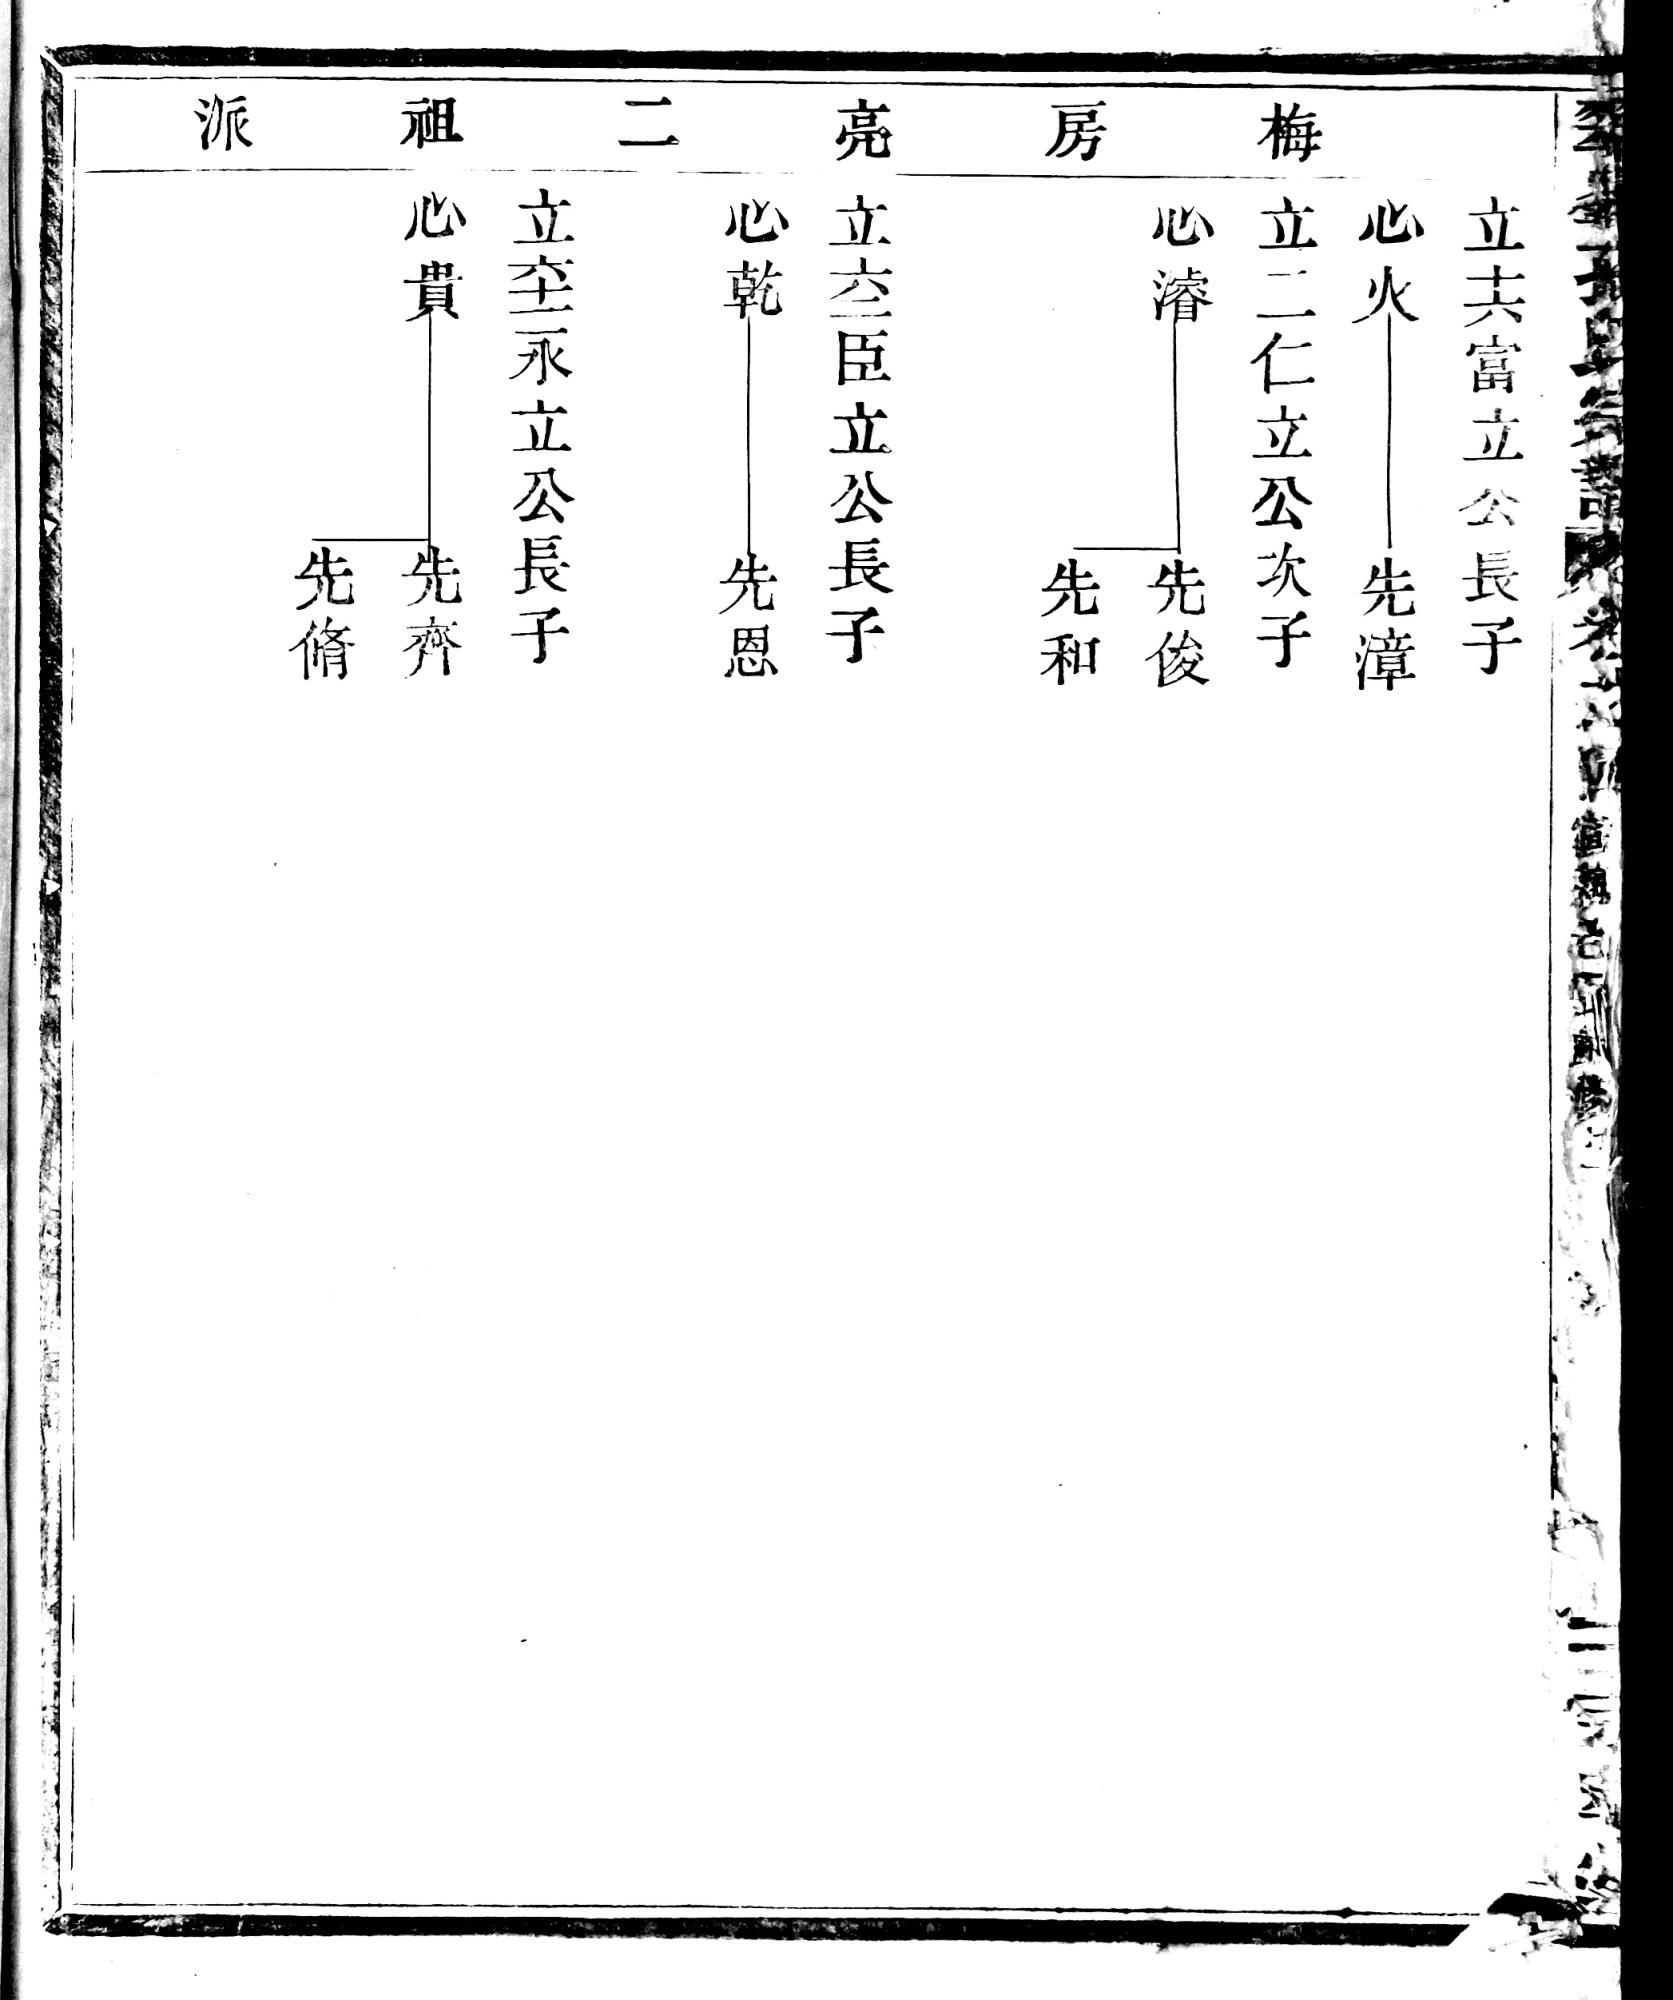 梅房亮二祖派
立十六富立公長子
心火
先漳
立二仁立公次子
心濬
先俊
先和
立六二臣立公長子
心乾
先恩
立六十二永立公長子
心貴
先齊
先脩